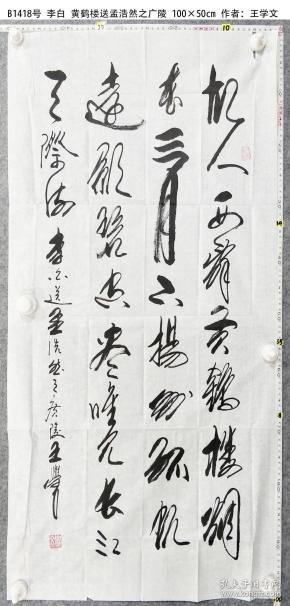 B1418号 李白 黄鹤楼送孟浩然之广陵 100×50cm 作者：王学文
故人西辞黄鹤楼烟
花三月下揚州孤帆
遠影碧空尽唯见长江
天際流 李白送孟浩然之廣陵 王學文
孔夫子旧书网